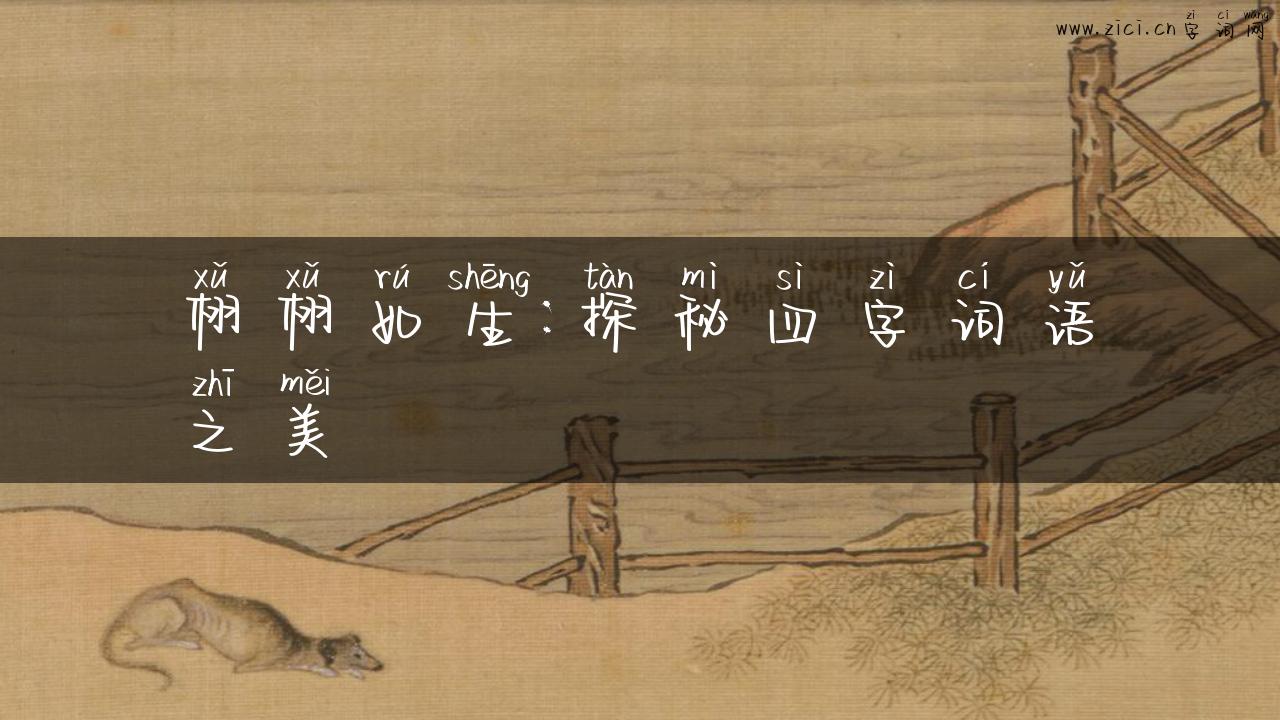 zì cí wǎng
www.zici.cn 字词网
xǔ xǔ rú shēng tàn mì sì zì cí yǔ
栩栩如生:探秘四字词语
zhī měi
之美